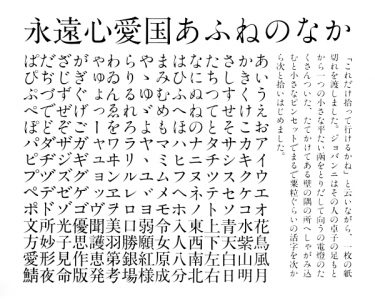 永遠心愛国あふねのなか
「これだけ拾って行けるかね」と云いながら、一枚の紙
切れを渡しました。ジョバンニはその人の卓子の足もと
から一つの小さな平たい函をとりだして向うの電燈のた
くさんついた、たてかけてある壁の隅の所へしゃがみ込
むと小さなピンセットでまるで粟粒ぐらいの活字を次か
ら次と拾いはじめました。
あいうえおアイウエオ花鳥風月
かきくけこカキクケコ水紫山明
さしすせそサシスセソ青天白日
たちつてとタチツテト上下左右
なにぬねのナニヌネノ東西南北
はひふへほハヒフヘホ
まみむめもマミムメモ
やゝゆゞよヤヽユヾヨ
らりるれろラリルレロ
わゐんゑをワヰンヱヲ
ゃゅょっー
がぎぐげごガギグゲゴ
ざじずぜぞザジズゼゾ
だぢづでどダヂヅデド光子見命
ばぴぶぺぼパビプベポ
所妙形夜
文方愛鯖